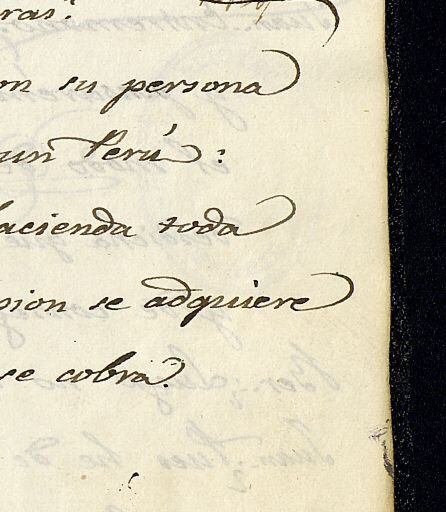 ras:
on su persona
un Perú:
acienda toda
sion se adquiere
se cobra.